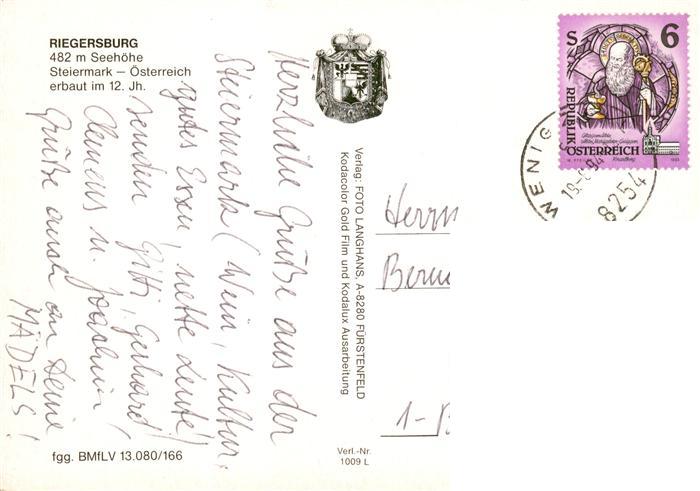 RIEGERSBURG
482 m Seehöhe
Steiermark – Österreich
erbaut im 12. Jh.
Herzliche Grüße aus der
Steiermark (Wein, Kultur,
gutes Essen, nette Leute!)
senden Gitti, Gerhard
Clemens u. Joachim!
Grüße auch an Deine
MÄDELS!
fgg. BMfLV 13.080/166
Verlag: FOTO LANGHANS, A-8280 FÜRSTENFELD
Kodacolor Gold Film und Kodalux Ausarbeitung
Verl.-Nr.
1009 L
Herrn
Bern
1-
S 6
REPUBLIK
ÖSTERREICH
1993
WENIG
8254